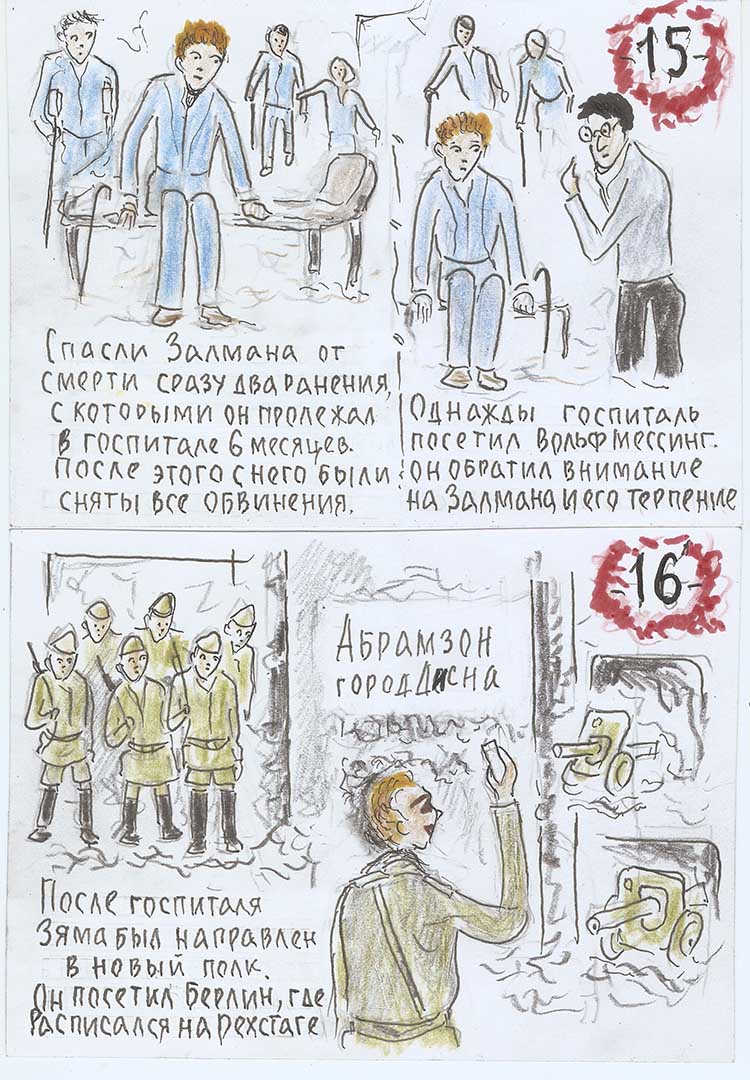 -15-
Спасли Залмана от
смерти сразу два ранения,
с которыми он пролежал
в госпитале 6 месяцев.
После этого с него были
сняты все обвинения.
Однажды госпиталь
посетил Вольф Мессинг.
он обратил внимание
на Залмана и его терпение
-16-
Абрамзон
город Дисна
После госпиталя
Зяма был направлен
в новый полк.
Он посетил Берлин, где
расписался на Рехстаге